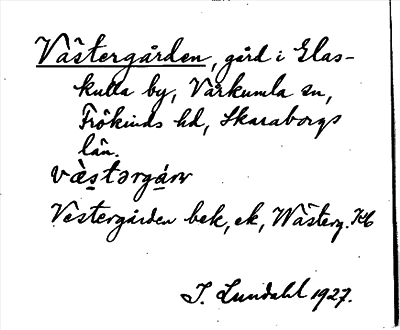 Västergården, gård i Glas-
kulla by, Vårkumla sn,
Frökinds hd, Skaraborgs
län.
væ̀stərgánr
Vestergården bek, ek, Wästerg. Kb
I. Lundahl 1927.